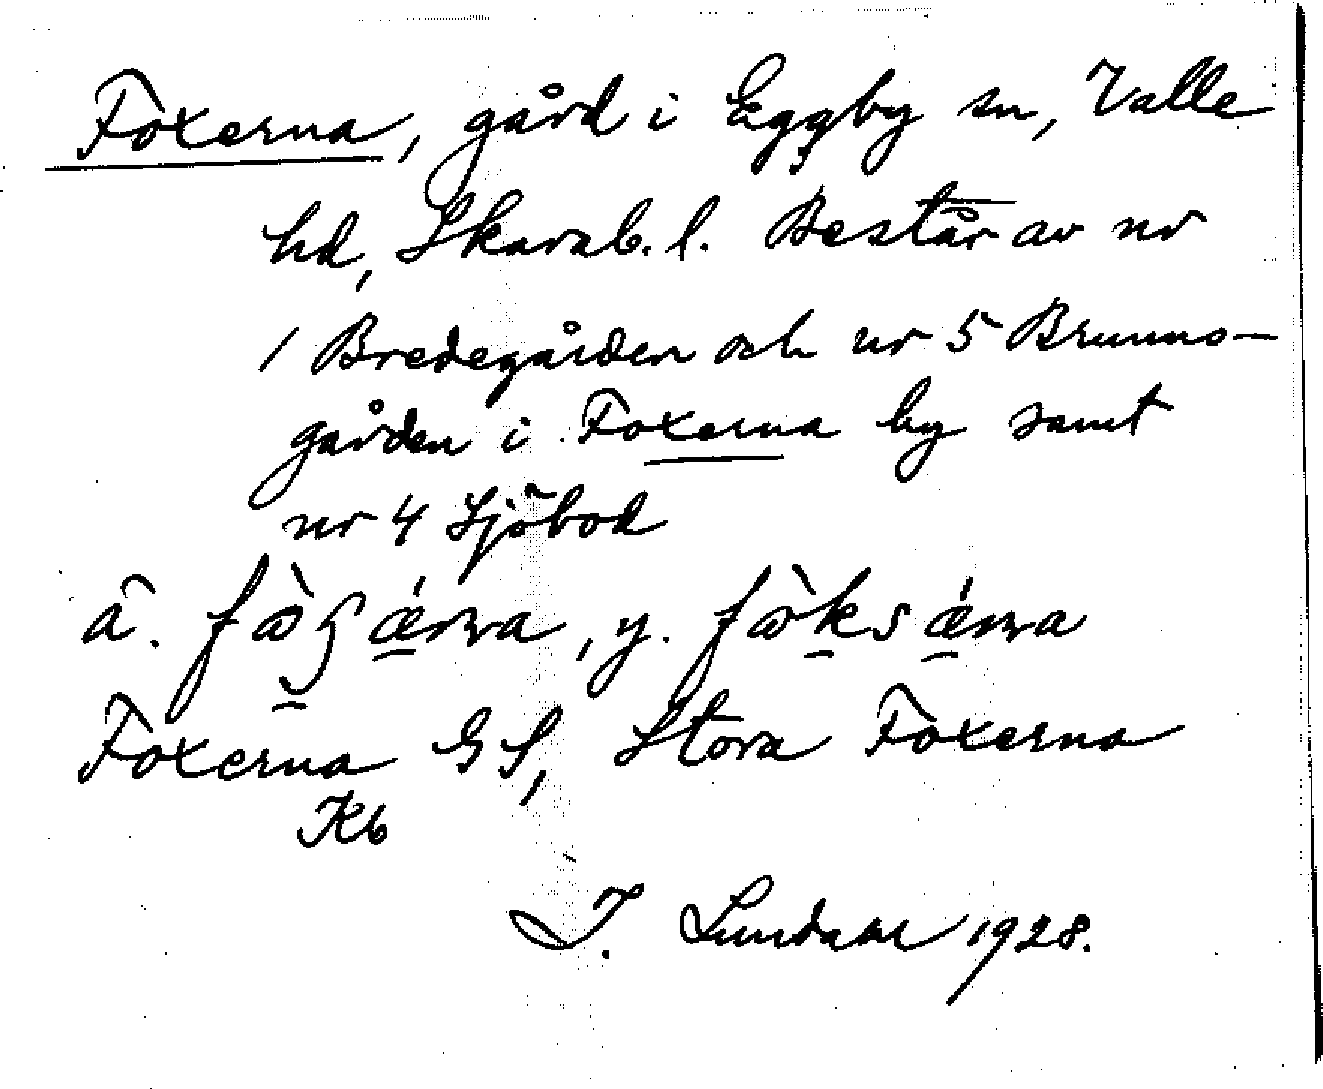 Foxerna, gård i Eggby sn, Valle
hd, Skarab. l. Består av nr
1 Bredegården och nr 5 Brunns-
gården i Foxerna by samt
nr 4 Sjöbod
ä. , y.
Foxerna GS, Stora Foxerna
Kb
I. Lundahl 1928.